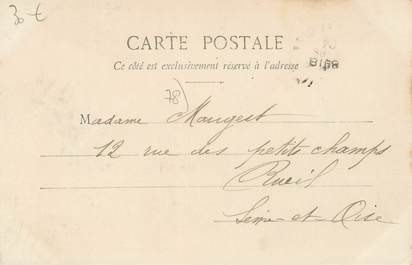 30 €
CARTE POSTALE
Ce côté est exclusivement réservé à l'adresse
78)
Madame Maugest
12 rue des petits champs
Rueil
Seine-et-Oise